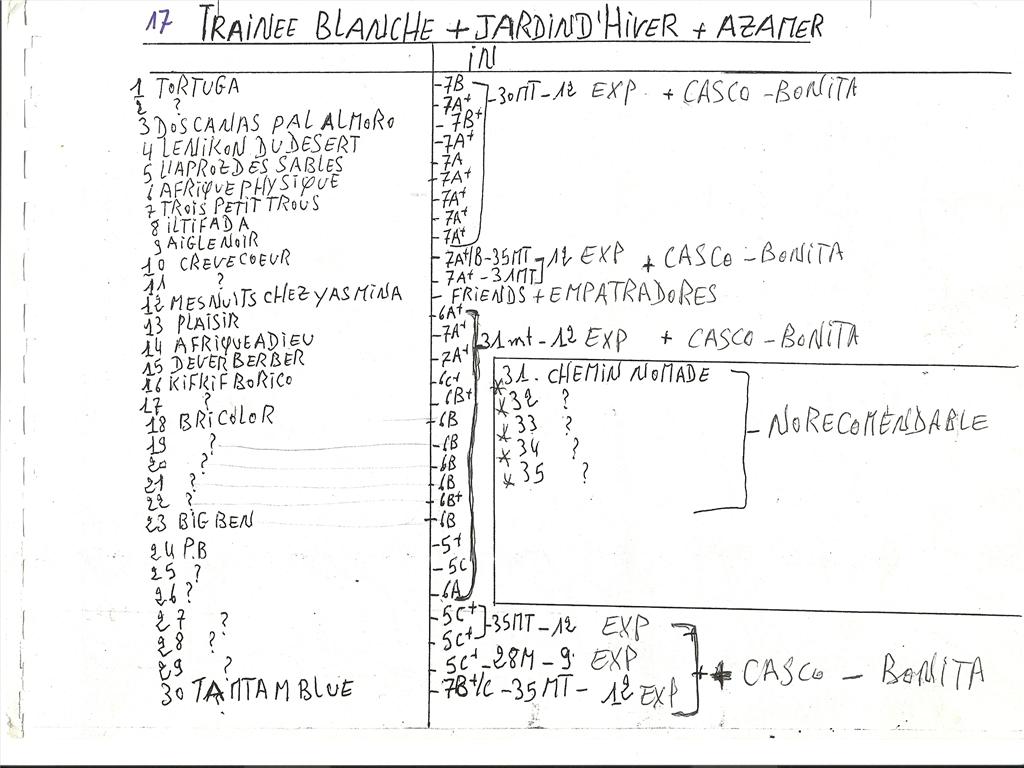 17 TRAINEE BLANCHE + JARDIND'HIVER + AZAMER
IN
1 TORTUGA -7B
2 ? 7A+ -30MT-12 EXP + CASCO-BONITA
3 DOSCANAS PAL ALMORO -7B+
4 LENIKON DU DESERT -7A+
5 L'IAPROZ DES SABLES -7A
6 AFRIQUE PHYSIQUE -7A+
7 TROIS PETIT TROUS -7A+
8 ILTIFADA -7A+
9 AIGLENOIR -7A+
10 CREVECOEUR -7A+/B-35MT -12 EXP + CASCO-BONITA
11 ? 7A+-31MT
12 MESNUITS CHEZ YASMINA - FRIENDS + EMPATRADORES
13 PLAISIR -6A+
14 AFRIQUEADIEU -7A+ 31mt-12 EXP + CASCO-BONITA
15 DEVERBERBER -7A+
16 KIFKIF BORICO -6C+ 31. CHEMIN NOMADE
17 ? -6B+ *32 ?
18 BRICOLOR -6B *33 ? -NORECOMENDABLE
19 ? -6B *34 ?
20 ? -6B *35 ?
21 ? -6B
22 ? -6B+
23 BIGBEN -6B
24 P.B -5+
25 ? -5C
26 ? 6A
27 ? 5C+ -35MT-12 EXP
28 ? 5C+
29 ? 5C+-28M-9 EXP + CASCO-BONITA
30 TAMTAM BLUE -7B+/C-35MT-12 EXP